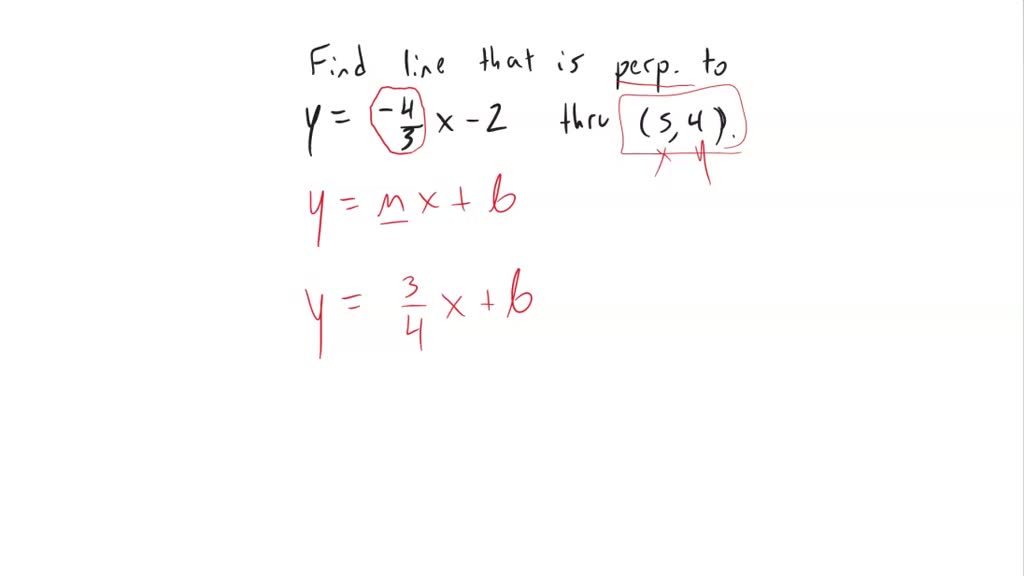 Find line that is perp. to
y = -4/3 x - 2 thru (5,4).
x y
y = mx + b
y = 3/4 x + b